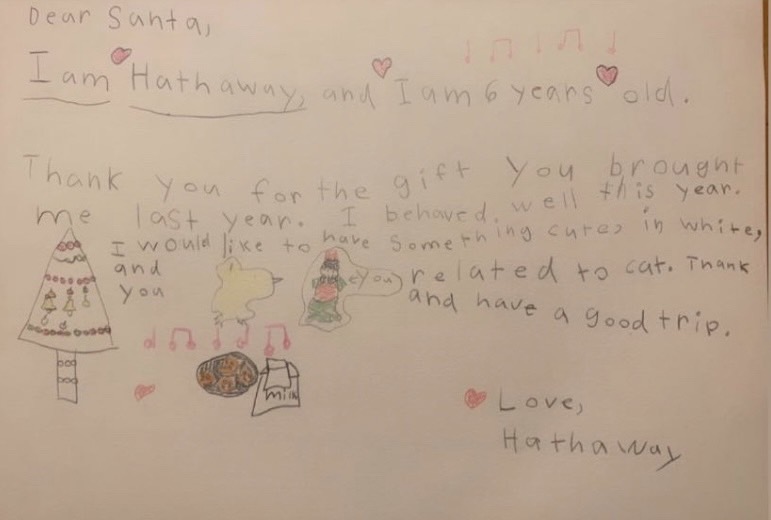 Dear Santa,
I am Hathaway, and I am 6 years old.
Thank you for the gift you brought
me last year. I behaved well this year.
I would like to have something cute, in white,
and related to cat. Thank
you and have a good trip.
eyou
milk
Love,
Hathaway